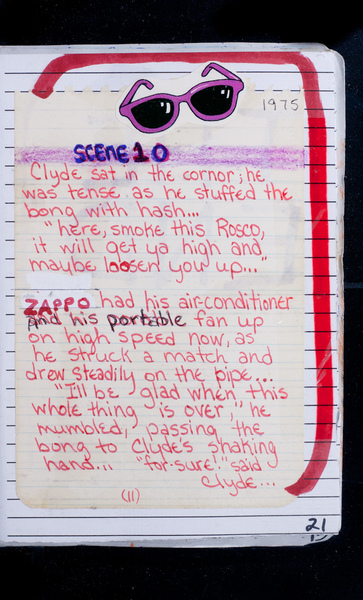 1975
SCENE 10
Clyde sat in the cornor; he
was tense as he stuffed the
bong with hash...
"here, smoke this Rosco,
it will get ya high and
maybe loosen you up..."
ZAPPO had his air-conditioner
and his portable fan up
on high speed now, as
he struck a match and
drew steadily on the pipe...
"I'll be glad when this
whole thing is over," he
mumbled, passing the
bong to Clyde's shaking
hand... "for-sure!" said
Clyde...
(11)
21